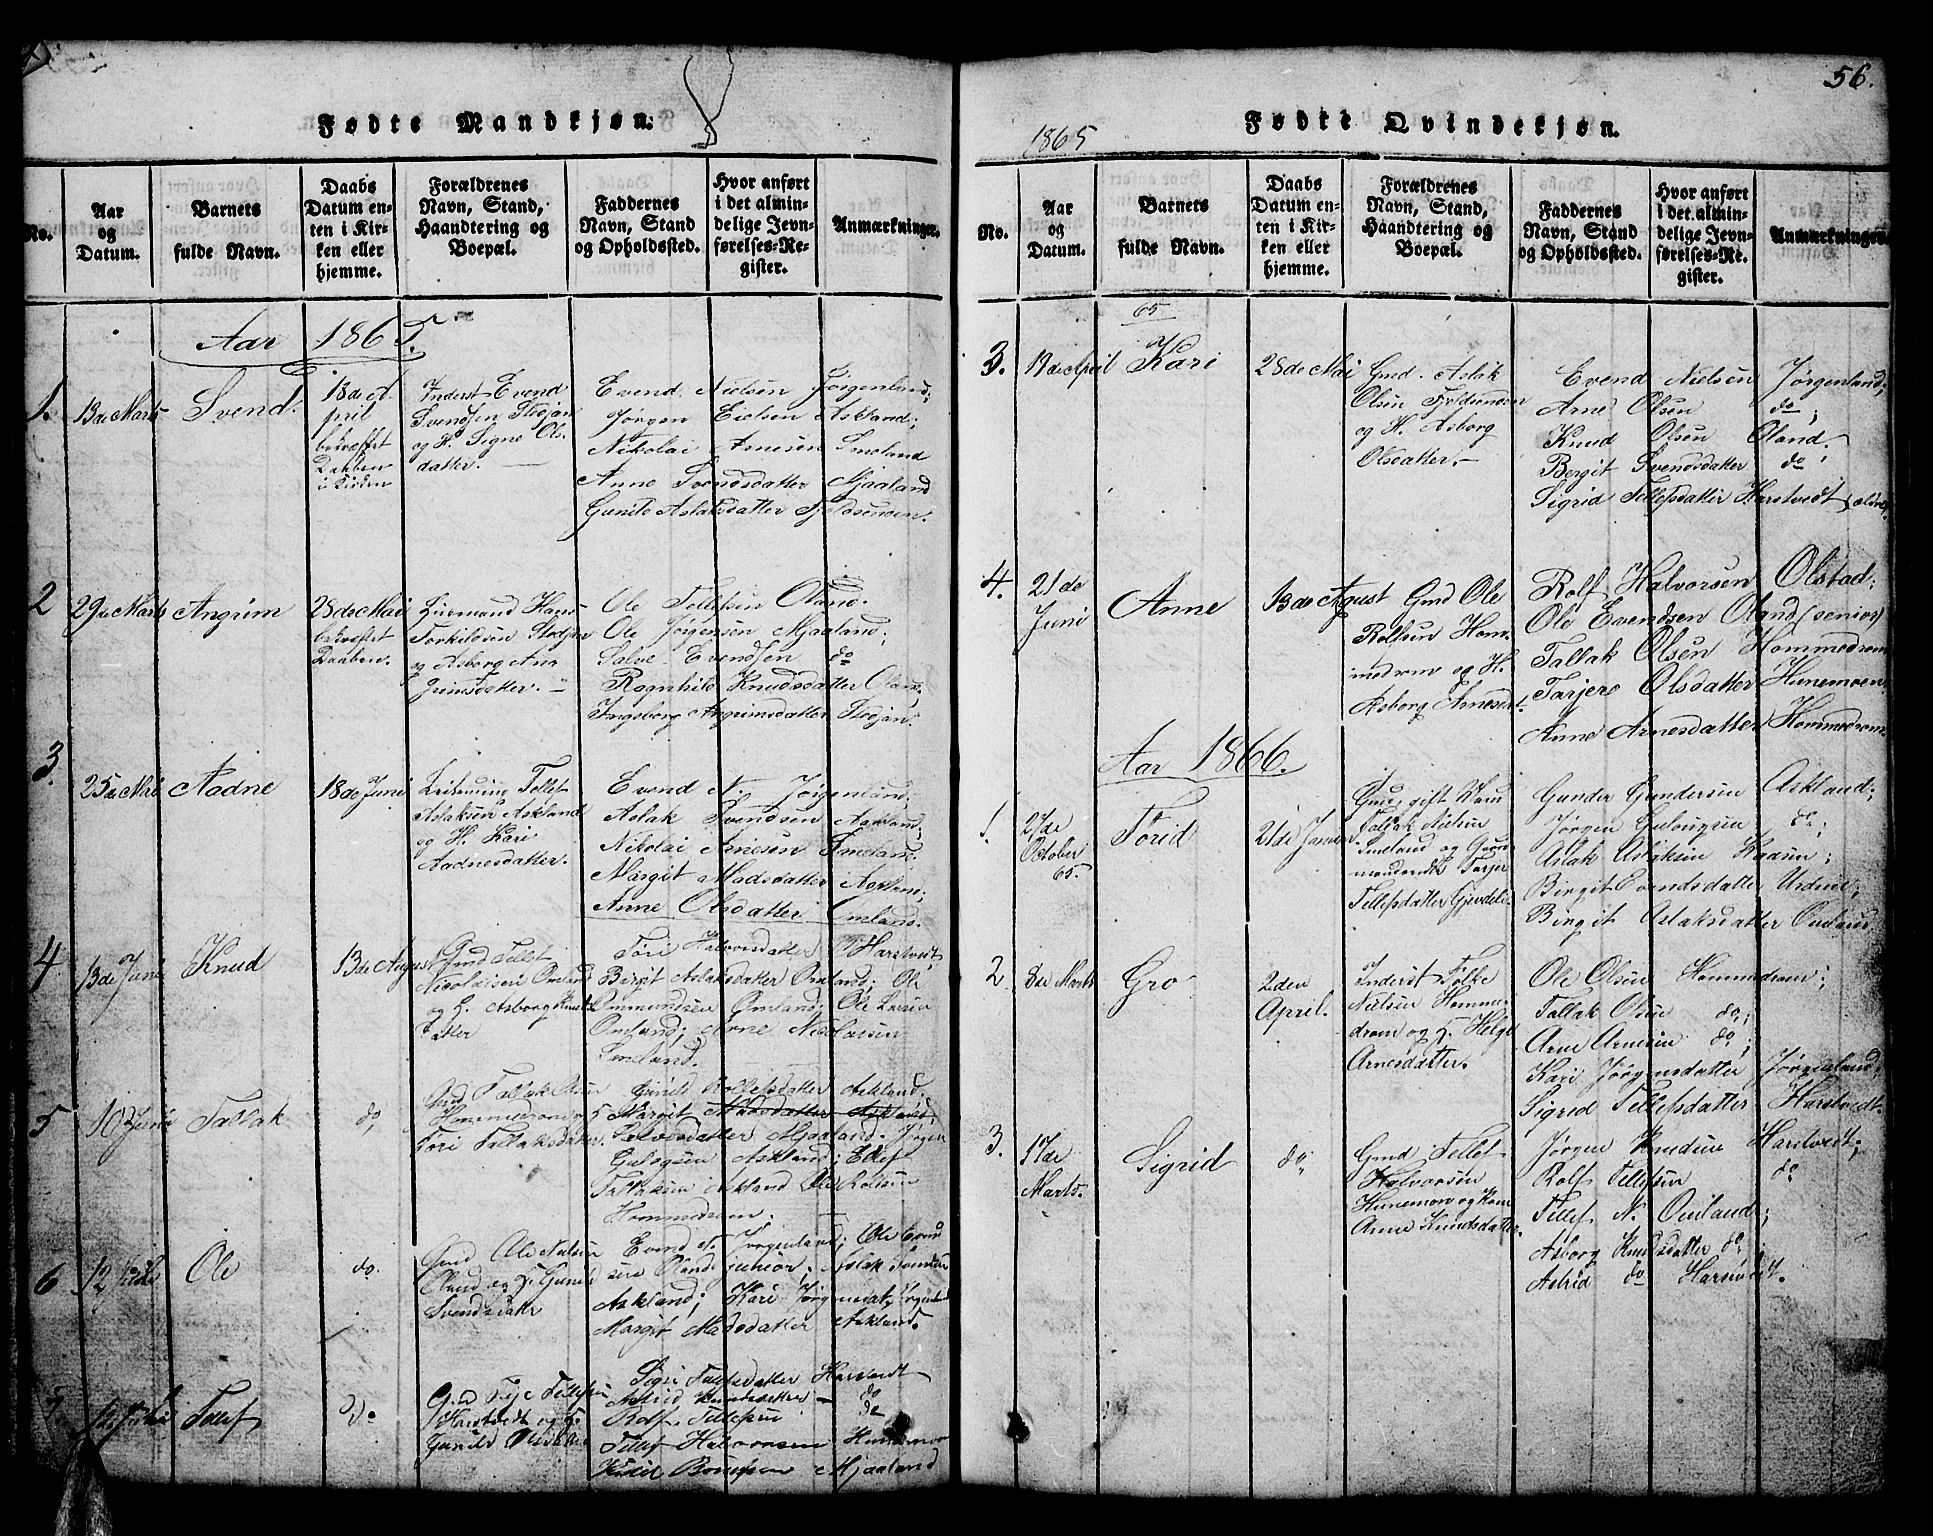 Fødte Mandkjøn.
No.
Aar
og
Datum.
Barnets
fulde Navn.
Daabs
Datum en-
ten i Kir-
ken eller
hjemme.
Forældrenes
Navn, Stand,
Haandtering og
Boepæl.
Faddernes
Navn, Stand
og Opholdssted.
Hvor anført
i det almin-
delige Jevn-
førelses-Re-
gister.
Anmærkninger.
Aar 1865.
1.
13de Marts
Svend.
13de A-
pril
bekræftet
Daaben
i Kirken
Inderst Evend
Svendsen Stedjan
og H. Signe Ols
datter.
Evend Nielsen Jørgenland;
Jørgen Eielsen Askland;
Nikolai Arnesen Smeland
Anne Svendsdatter Mjaaland
Gunild Aslaksdatter Fjeldsenoen.
2
29de Marts
Angrim
28de Mai
bekræftet
Daaben.
Hans
Torkildsen Stedjan
og Asborg Ann
grimsdatter.
Ole Tellefsen Oland.
Ole Jørgensen Mjaaland;
Salve Evendsen do
Ragnhild Knudsdatter Oland,
Ingeborg Angrimsdatter Stedjan.
3.
25de Mai
Aadne
18de Juni
Tellef
Aslaksen Askland
og H. Kari
Aadnesdatter.
Evend N. Jørgenland;
Aslak Svendsen Askland;
Nikolai Arnesen Smeland.
Margit Madsdatter Askland;
Anne Olsdatter Omland.
4
13de Juni
Knud
13de August
Gmd Tellef
Nicolaisen Omland
og H. Asborg Knuds
datter
Tori Halvorsdatter Harstvedt,
Birgit Aslaksdatter Omland; Ole
Ommundsen Omland; Ole Larsen
Omland; Arne Nicolaisen
Smeland.
5
10de Juni
Tallak
do,
Gmd Tallak Olsen
Hommedrom og H.
Tori Tallaksdatter.
Gunild Rollefsdatter Askland.
Margit Madsdatter Askland;
Salvesdatter Mjaaland. Jørgen
Gulogsen Askland; Ellef
Tallaksen Askland Ole Rolfsen
Hommedrom.
6
12
Ole
do.
Gmd Ole Nielsen
Oland og H. Gunild
Svendsdatr
Evend N. Jørgenland; Ole Evend
sen Oland junior. Aslak Svendsen
Askland; Kari Jørgensdat, Jørgenland
Margit Madsdatter Askland.
7.
Tellef
Do
Gmd Tellefsen
Harstvedt og H.
Gunild
Siri Tallaksdatter Harstvedt
Astrid Knudsdatter - do
Rolf Tellefsen do
Tellef Halvorsen Hunemoe
Knud Mjaaland
56.
1865
Fødte Qvindekjøn.
No.
Aar
og
Datum.
Barnets
fulde Navn.
Daabs
Datum en-
ten i Kir-
ken eller
hjemme.
Forældrenes
Navn, Stand,
Haandtering og
Boepæl.
Faddernes
Navn, Stand
og Opholdssted.
Hvor anført
i det almin-
delige Jevn-
førelses-Re-
gister.
Anmærkninger.
65
3.
19de April
Kari
28de Mai
Gmd. Aslak
Olsen Fjeldsenoen
og H. Asborg
Olsdatter.
Evend Nielsen Jørgenland;
Arne Olsen do;
Knud Olsen Oland.
Bergit Svendsdatter do;
Sigrid Tellefsdatter Harstvedt, ældre,
4.
21de
Juni
Anne
13de August
Gmd Ole
Rolfsen Hom-
medrom og H.
Asborg Arnesdt.
Rolf Halvorsen Olstad;
Ole Evendsen Oland (senior)
Tallak Olsen Hommedrom
Tarjere Olsdatter Hunemoen
Anne Arnesdatter Hommedrom
Aar 1866.
1.
27de
October
65.
Torid
21de Januar
Gmd, gift Mand
Tallak Nielsen
Smeland og Gaard
mandsenke Tarjer
Tellefsdatter Gjevdeli
Gunder Gundersen Askland;
Jørgen Gulougsen do;
Aslak Aslaksen
Birgit Evendsdatter
Birgit Aslaksdatter Omland
2.
8de Marts
Gro
2den
April.
Inderst Folke
Nielsen Homme-
drom og H. Helge
Arnesdatter.
Ole Olsen Hommedrom;
Tallak Olsen do;
Arne Arnesen do;
Kari Jørgensdatter Jørgenland;
Sigrid Tellefsdatter Harstvedt
3.
17de
Marts.
Sigrid
do
Gmd Tellef
Halvorsen
Hunemoe og Kone
Anne Knudsdatter.
Jørgen Knudsen Harstvedt;
Rolf Tellefsen do
Tellef N. Omland;
Asborg Knudsdatter do;
Astrid do Harstvedt.